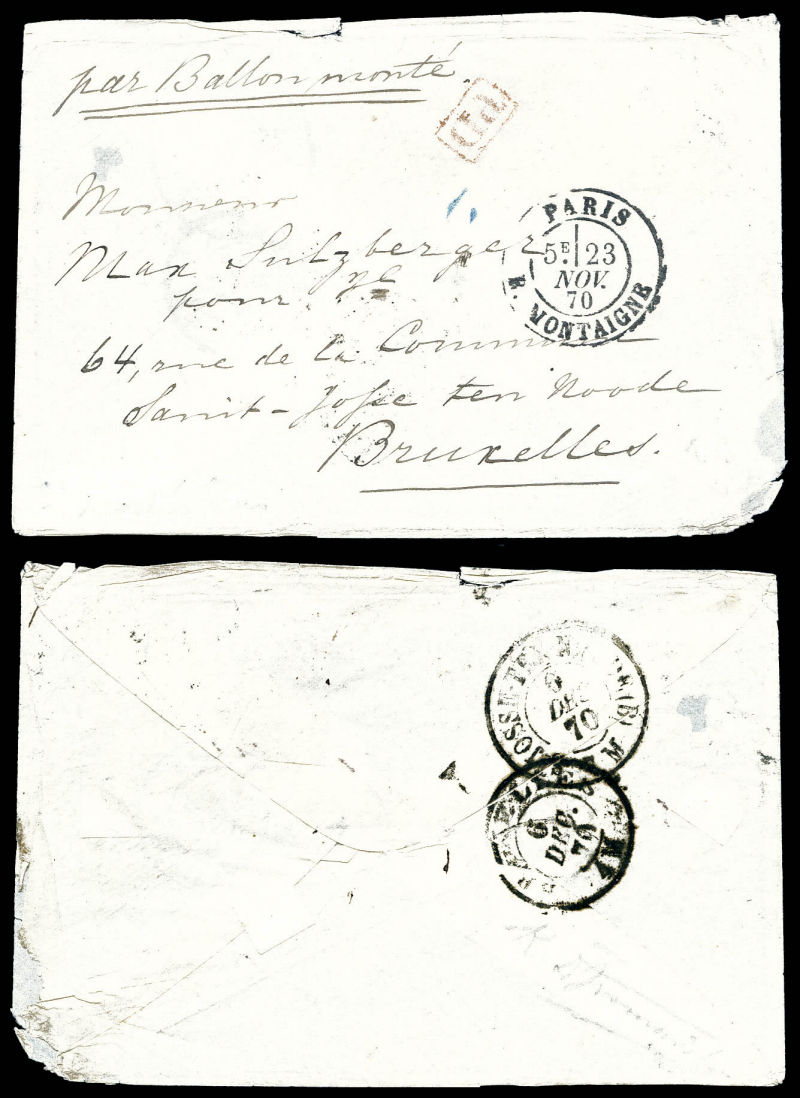 par Ballon monté
PD
Monsieur
Max Sulzberger
pour
64, rue de la Commune
Saint-Josse ten Noode
Bruxelles.
PARIS
5E 23
NOV.
70
R. MONTAIGNE
JOSSE-TEN-N
6
DEC
70
6
DEC.
70